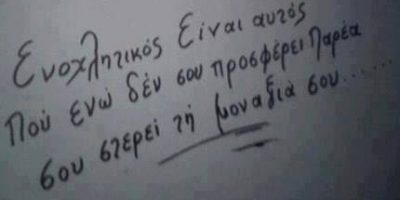 Ενοχλητικός Είναι αυτός
Πού ενώ δέν σου προσφέρει Παρέα
σου στερεί τή μοναξιά σου......